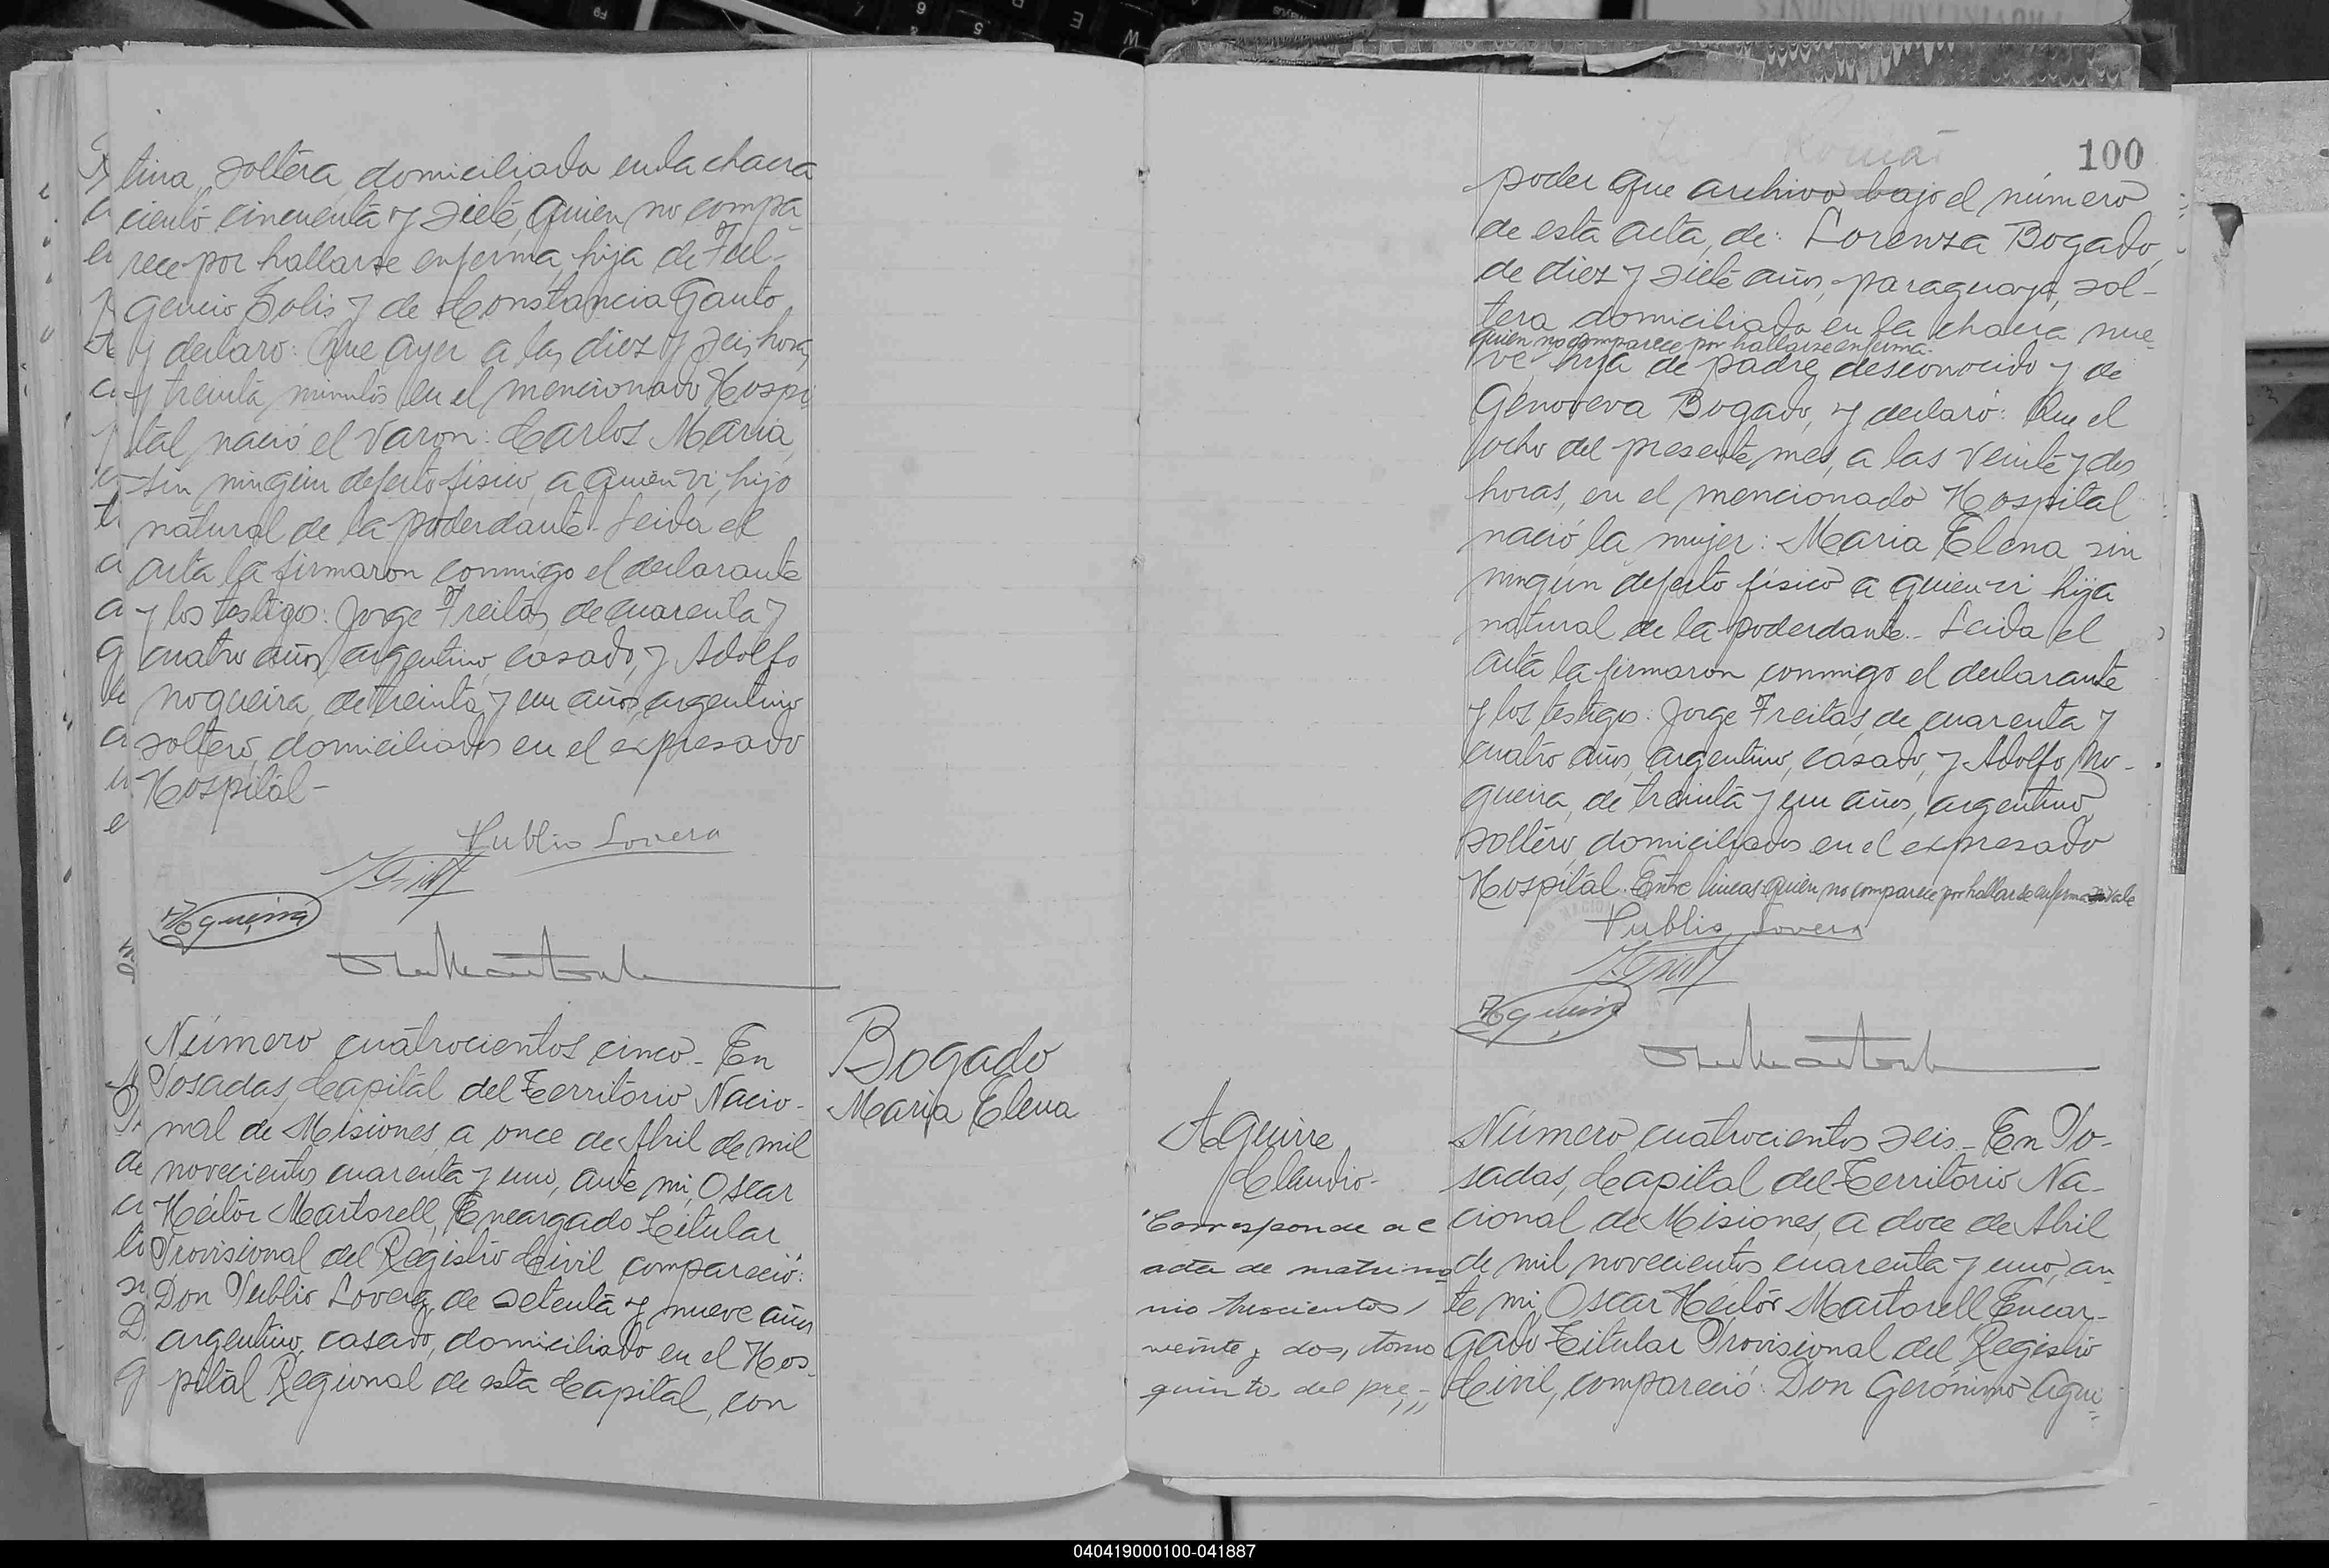 tina, soltera, domiciliada en la chacra
ciento cincuenta y siete, quien no compa-
rece por hallarse enferma, hija de Ful-
gencio Solis y de Constancia Gauto,
y declaró: Que ayer a las diez y seis horas
y treinta minutos en el mencionado Hospi-
tal, nació el varon: Carlos Maria,
sin ningún defecto fisico, a quien vi, hijo
natural de la poderdante. Leida el
acta la firmaron conmigo el declarante
y los testigos: Jorge Freitas, de cuarenta y
cuatro años, argentino, casado, y Adolfo
Nogueira, de treinta y un años, argentino,
soltero, domiciliados en el expresado
Hospital-
Publio Lovera
Nogueira
Número cuatrocientos cinco - En
Posadas, Capital del Territorio Nacio-
nal de Misiones, a once de Abril de mil
novecientos cuarenta y uno, ante mi, Oscar
Héctor Martorell, Encargado Titular
Provisional del Registro Civil compareció:
Don Publio Lovera, de setenta y nueve años
argentino, casado, domiciliado en el Hos-
pital Regional de esta Capital, con
Bogado
Maria Elena
100
poder que archivo bajo el número
de esta acta, de: Lorenza Bogado,
de diez y siete años, paraguaya, sol-
tera, domiciliada en la chacra nue-
quien no comparece por hallarse enferma-
ve, hija de padre desconocido y de
Genoveva Bogado, y declaró: Que el
ocho del presente mes, a las veinte y dos
horas, en el mencionado Hospital
nació la mujer: Maria Elena, sin
ningún defecto físico a quien vi hija
natural de la poderdante.- Leida el
acta la firmaron conmigo el declarante
y los testigos: Jorge Freitas, de cuarenta y
cuatro años, argentino, casado, y Adolfo No-
gueira, de treinta y un años, argentino,
soltero, domiciliados en el expresado
Hospital. Entre lineas: quien no comparece por hallarse enferma Vale
Publio Lovera
Nogueira
Aguirre
Claudio-
Corresponde al
acta de matrimo-
nio trescientos
veinte y dos, tomo
quinto del pre-
Número cuatrocientos seis - En Po-
sadas, Capital del Territorio Na-
cional de Misiones, a doce de Abril
de mil novecientos cuarenta y uno, an-
te mi, Oscar Héctor Martorell, Encar-
gado Titular Provisional del Registro
Civil, compareció: Don Gerónimo Agui-
040419000100-041887